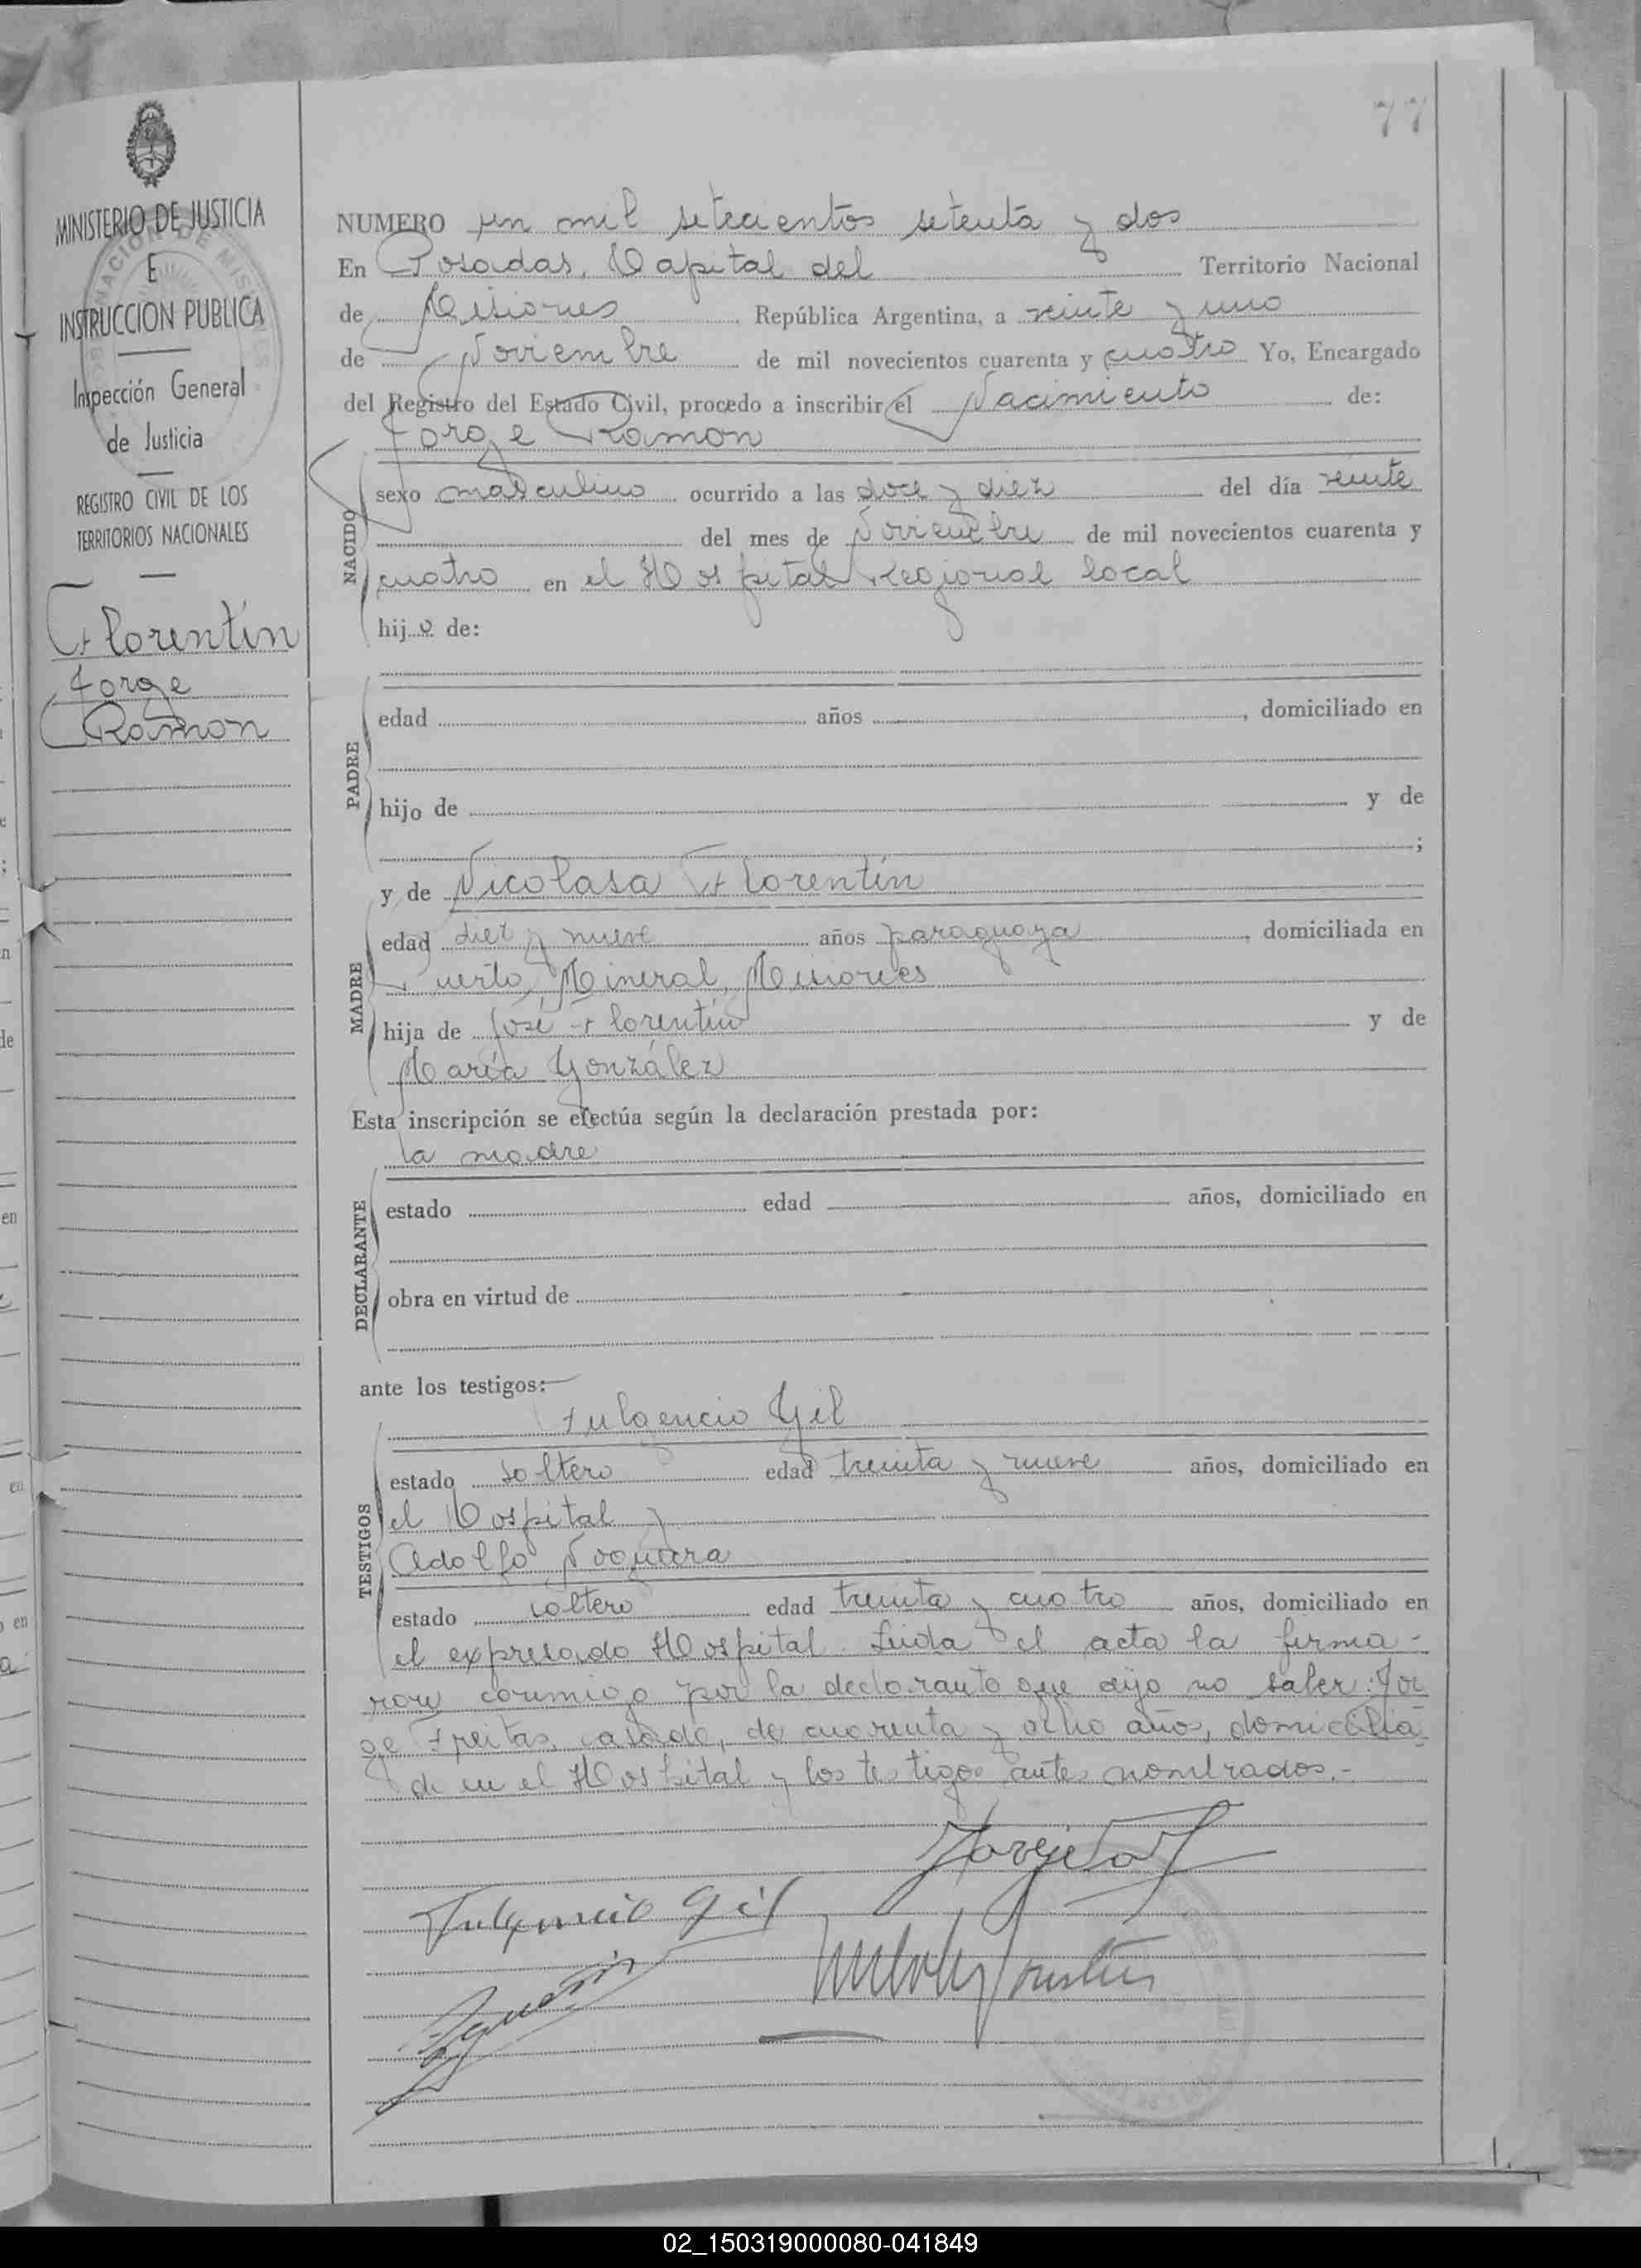 77
MINISTERIO DE JUSTICIA
E
INSTRUCCION PUBLICA
Inspección General
de Justicia
REGISTRO CIVIL DE LOS
TERRITORIOS NACIONALES
Florentín
Jorge
Ramon
NUMERO un mil setecientos setenta y dos
En Posadas, Capital del Territorio Nacional
de Misiones República Argentina, a veinte y uno
de Noviembre de mil novecientos cuarenta y cuatro Yo, Encargado
del Registro del Estado Civil, procedo a inscribir el Nacimiento de:
Jorge Ramon
NACIDO
sexo masculino ocurrido a las doce y diez del día veinte
del mes de Noviembre de mil novecientos cuarenta y
cuatro en el Hospital Regional local
hijo de:
PADRE
edad años , domiciliado en
hijo de y de
;
y de Nicolasa Florentín
MADRE
edad diez y nueve años paraguaya , domiciliada en
Puerto Mineral, Misiones
hija de José Florentín y de
María González
Esta inscripción se efectúa según la declaración prestada por:
la madre
DECLARANTE
estado edad años, domiciliado en
obra en virtud de
ante los testigos:
Fulgencio Gil
TESTIGOS
estado soltero edad treinta y nueve años, domiciliado en
el Hospital y
Adolfo Noguera
estado soltero edad treinta y cuatro años, domiciliado en
el expresado Hospital. Leida el acta la firma-
ron conmigo por la declarante que dijo no saber: Jor
ge Freitas, casado, de cuarenta y ocho años, domicilia
do en el Hospital y los testigos antes nombrados.-
Fulgencio Gil
02_150319000080-041849